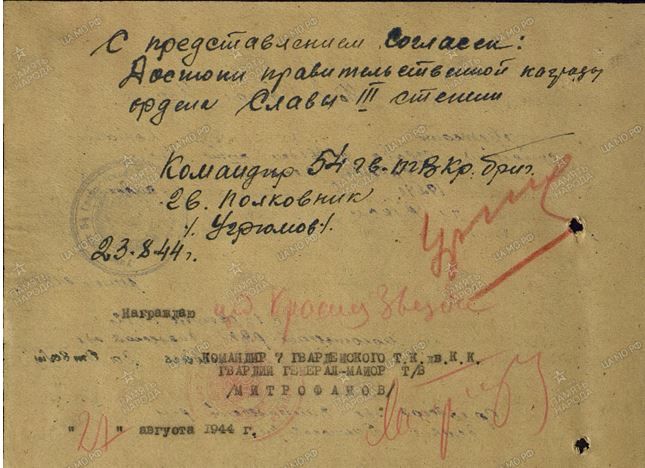 С представлением согласен:
Достоин правительственной награды
ордена Славы III степени
Командир 54 гв. тв Кр. бриг.
гв. полковник
/. Угрюмов /.
23.8.44 г.
Награждаю орд Красная Звезда
КОМАНДИР 7 ГВАРДЕЙСКОГО Т.К. К.К.
ГВАРДИИ ГЕНЕРАЛ-МАЙОР Т/В
/МИТРОФАНОВ/
"27" августа 1944 г.